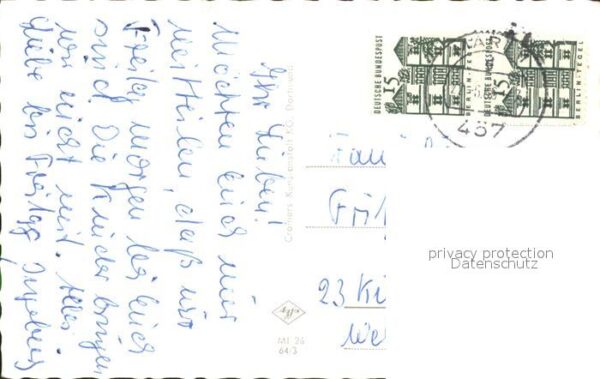 Ihr Lieben!
Möchten Euch nur
mitteilen, daß wir
Freitag morgen bei Euch
sind. Die Kinder bringen
wir nicht mit. Alles
Liebe bis Freitag Ingeburg
Cramers Kunstanstalt KG, Dortmund
MI 26
64/3
DEUTSCHE BUNDESPOST
15
BERLIN-TEGEL
DEUTSCHE BUNDESPOST
15
BERLIN-TEGEL
437
Fam
23 Ki
We
privacy protection
Datenschutz